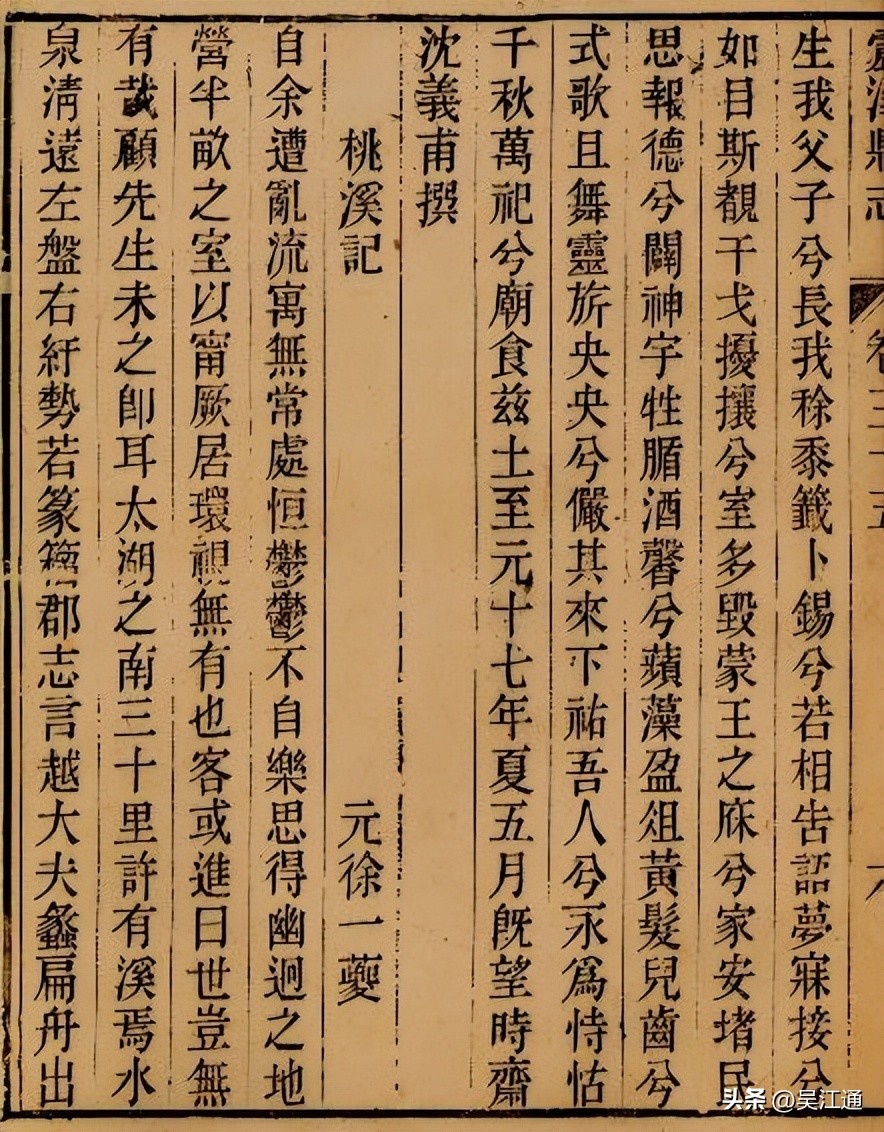 震澤縣志 卷三十五 六
生我父子兮長我稌黍籤卜錫兮若相告詔夢寐接兮
如目斯覩干戈擾攘兮室多毀蒙王之庥兮家安堵民
思報德兮闢神宇牲腯酒馨兮蘋藻盈俎黃髮兒齒兮
式歌且舞靈旂央央兮儼其來下祐吾人兮永爲恃怙
千秋萬祀兮廟食兹土至元十七年夏五月旣望時齋
沈義甫撰
桃溪記 元徐一夔
自余遭亂流寓無常處恒鬱鬱不自樂思得幽迥之地
營半畝之室以甯厥居環視無有也客或進曰世豈無
有哉顧先生未之卽耳太湖之南三十里許有溪焉水
泉淸遠左盤右紆勢若篆籀郡志言越大夫蠡扁舟出
头条 @吴江通